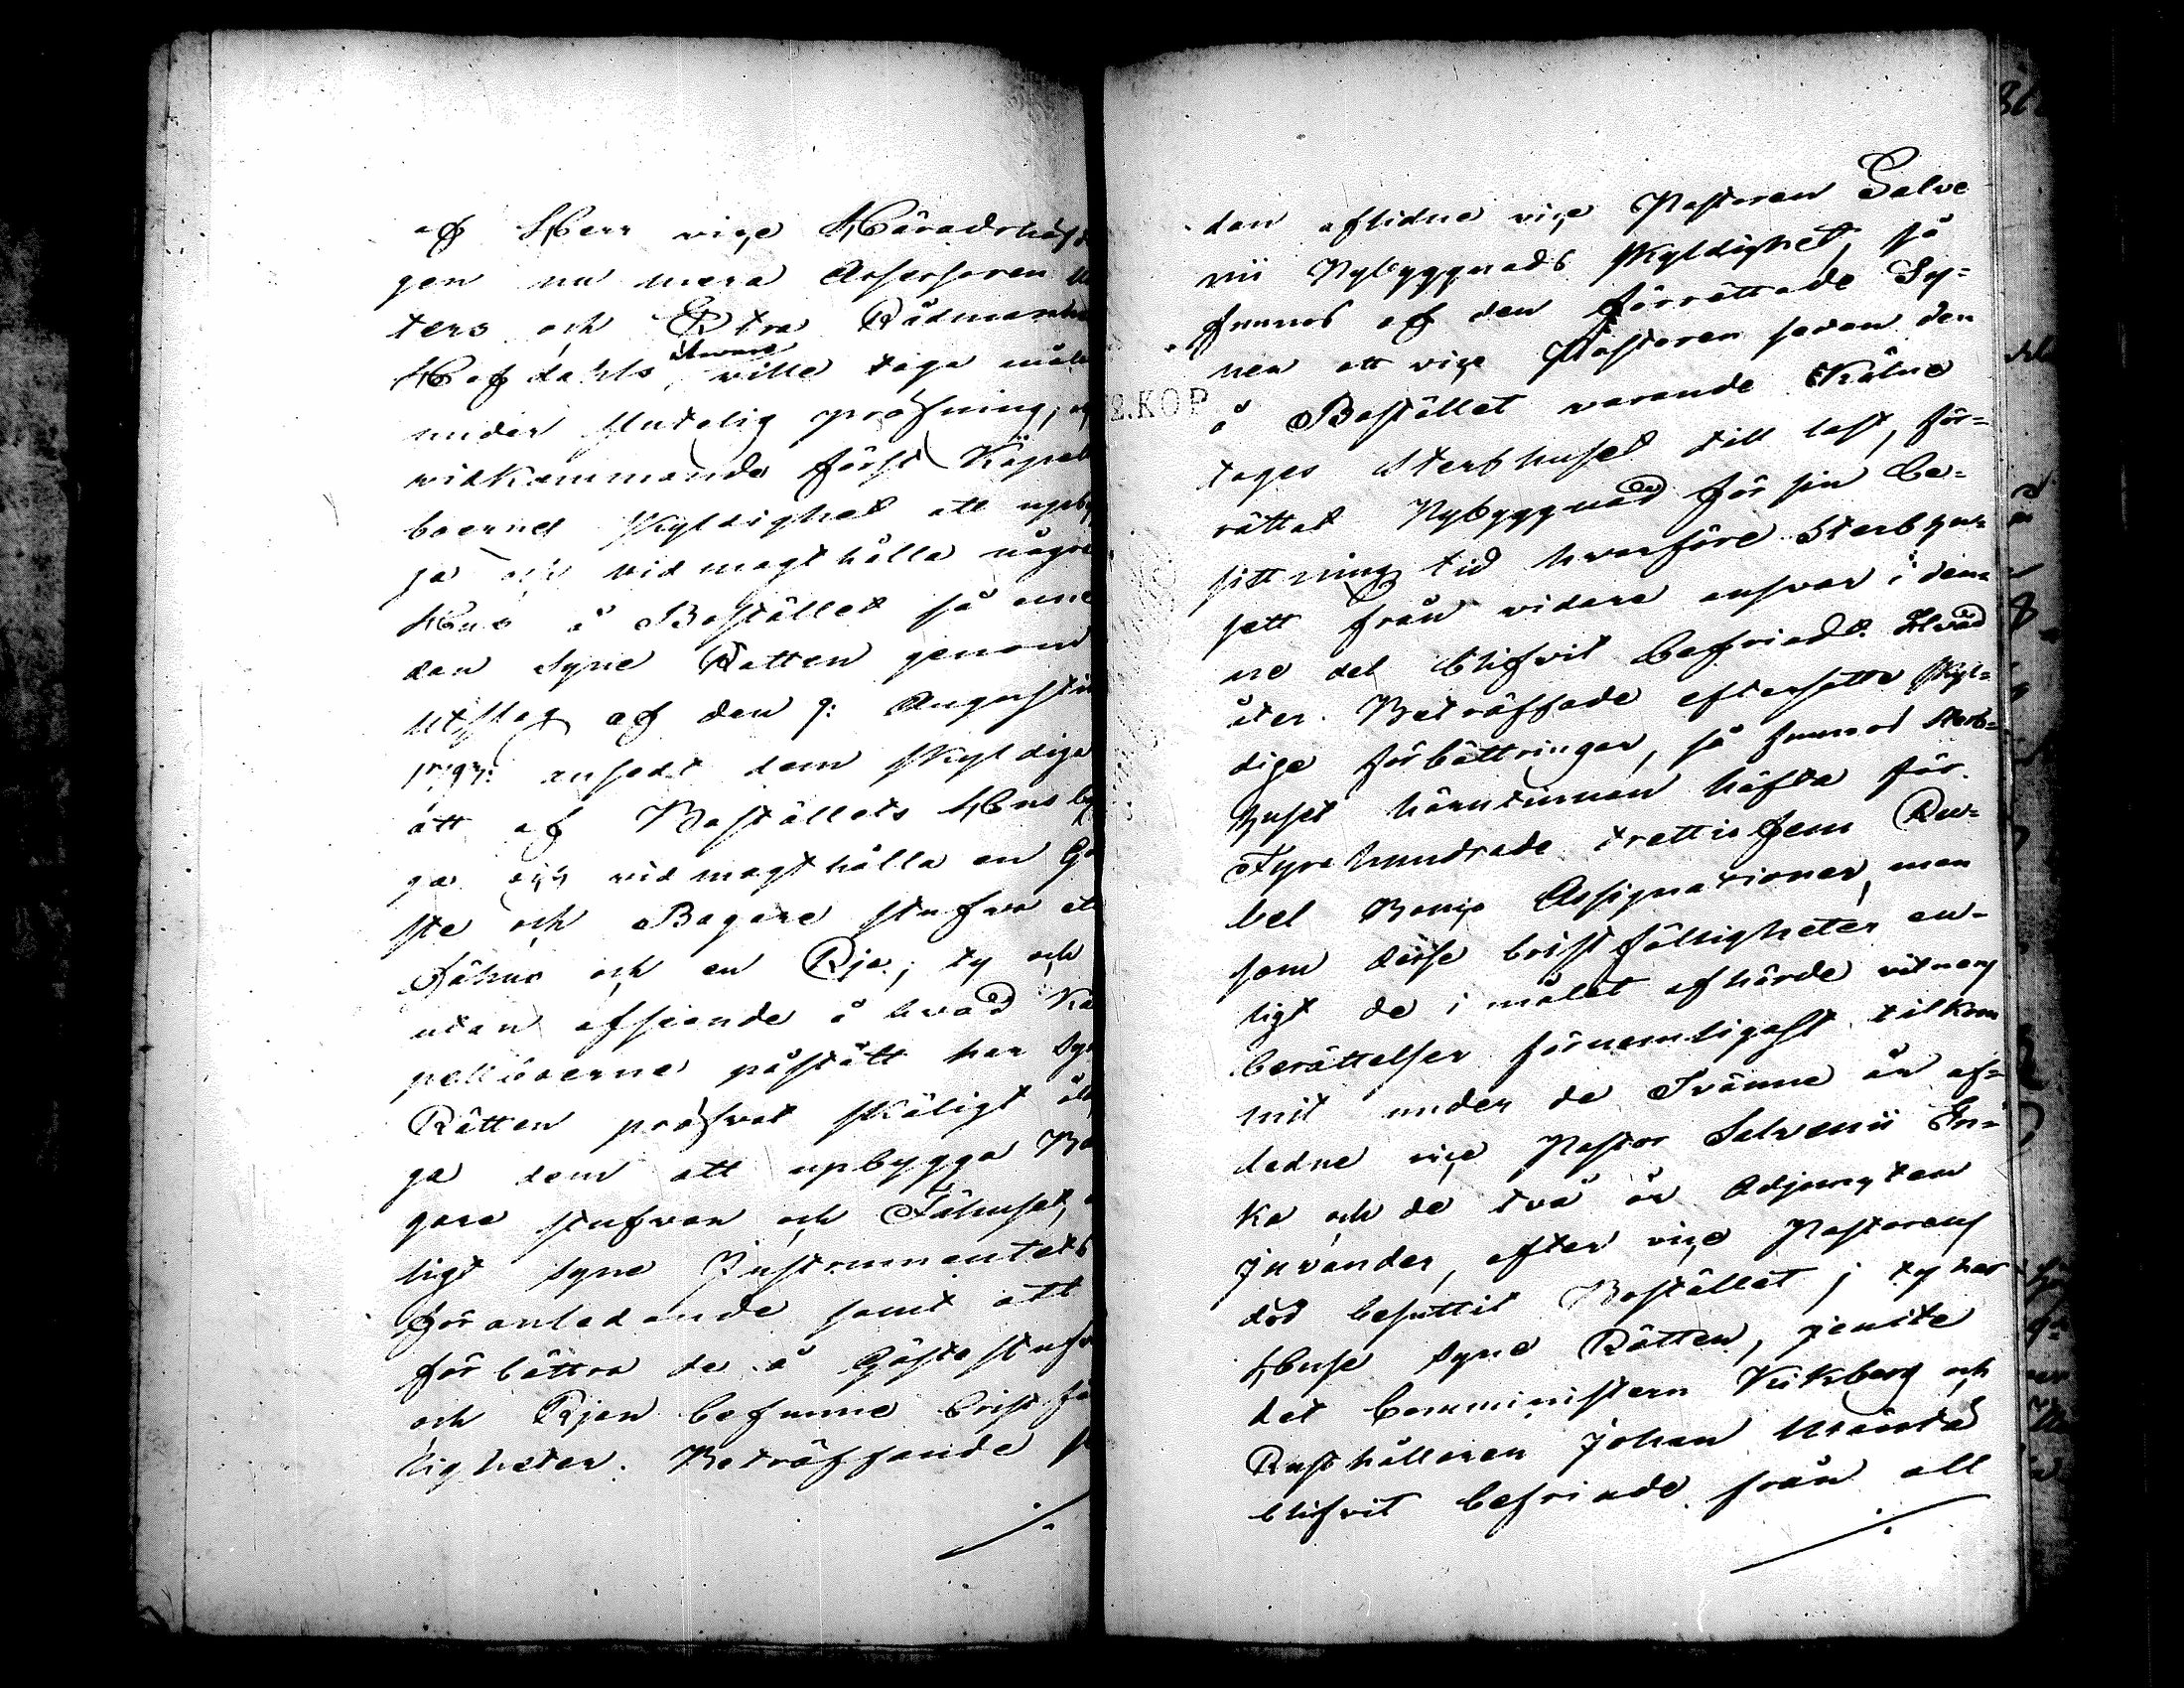 af Herr vice Häradshöf
gen nu mera Assessoren
ters och Extra Rådmannen
Hofdahls answar ville taga mål
under slutelig pröfning, och
widkommande först Kapel
boernes skyldighet att upby
ga och wid magt hålla några
Hus å Bostället så eme
dan Syne Rätten genom
utslag af den 9: Augusti
1797: ansedt dem skyldiga
att af Boställets Hus byg
ga och wid magt hålla en Gä
ste och Bagare stufwa et
Fähus och en Rja; ty och
utan afseende å hwad Ka
pellboerne påstått har Syne
Rätten pröfwat skäligt åläg
ga dem att upbygga Ba
gare stufwan och Fähuset,
ligt Syne Instrumentets
föranledande samt att
förbättra de å Gäste stufw
och Rjan befunne bristfäl
ligheter. Beträffande
den aflidne vice Pastoren Salve
nii Nybyggnads skyldighet, så
funnos af den förrättade Sy=
nen att vice Pastoren sedan den
å Bostället warande Kölne
toges Sterbhuset till last, för=
rättat Nybyggnad för sin be=
sittning tid hwarföre Sterbhu=
sett från widare answar i den=
ne del blifwit befriadt. Hwad
åter Beträffade eftersatte skyl=
dige förbättringar, så funnos Sterb=
huset härutinnan häfta för
Fyrahundrade trettiofem Ru=
bel Banco Assignationer, men
som desse bristfälligheter en=
ligt de i målet afhörde witnens
berättelser förnemligast tilkom
mit under de Tvänne år af=
ledne vice Pastor Salvenii En=
ka och de två år Adjuncten
Juvander, efter vice Pastorens
död besuttit Bostället; ty har
Huse Syne Rätten, jemte
det Comministern Kükberg och
Rusthållaren Johan
blifwit befriade från all
2.KOP